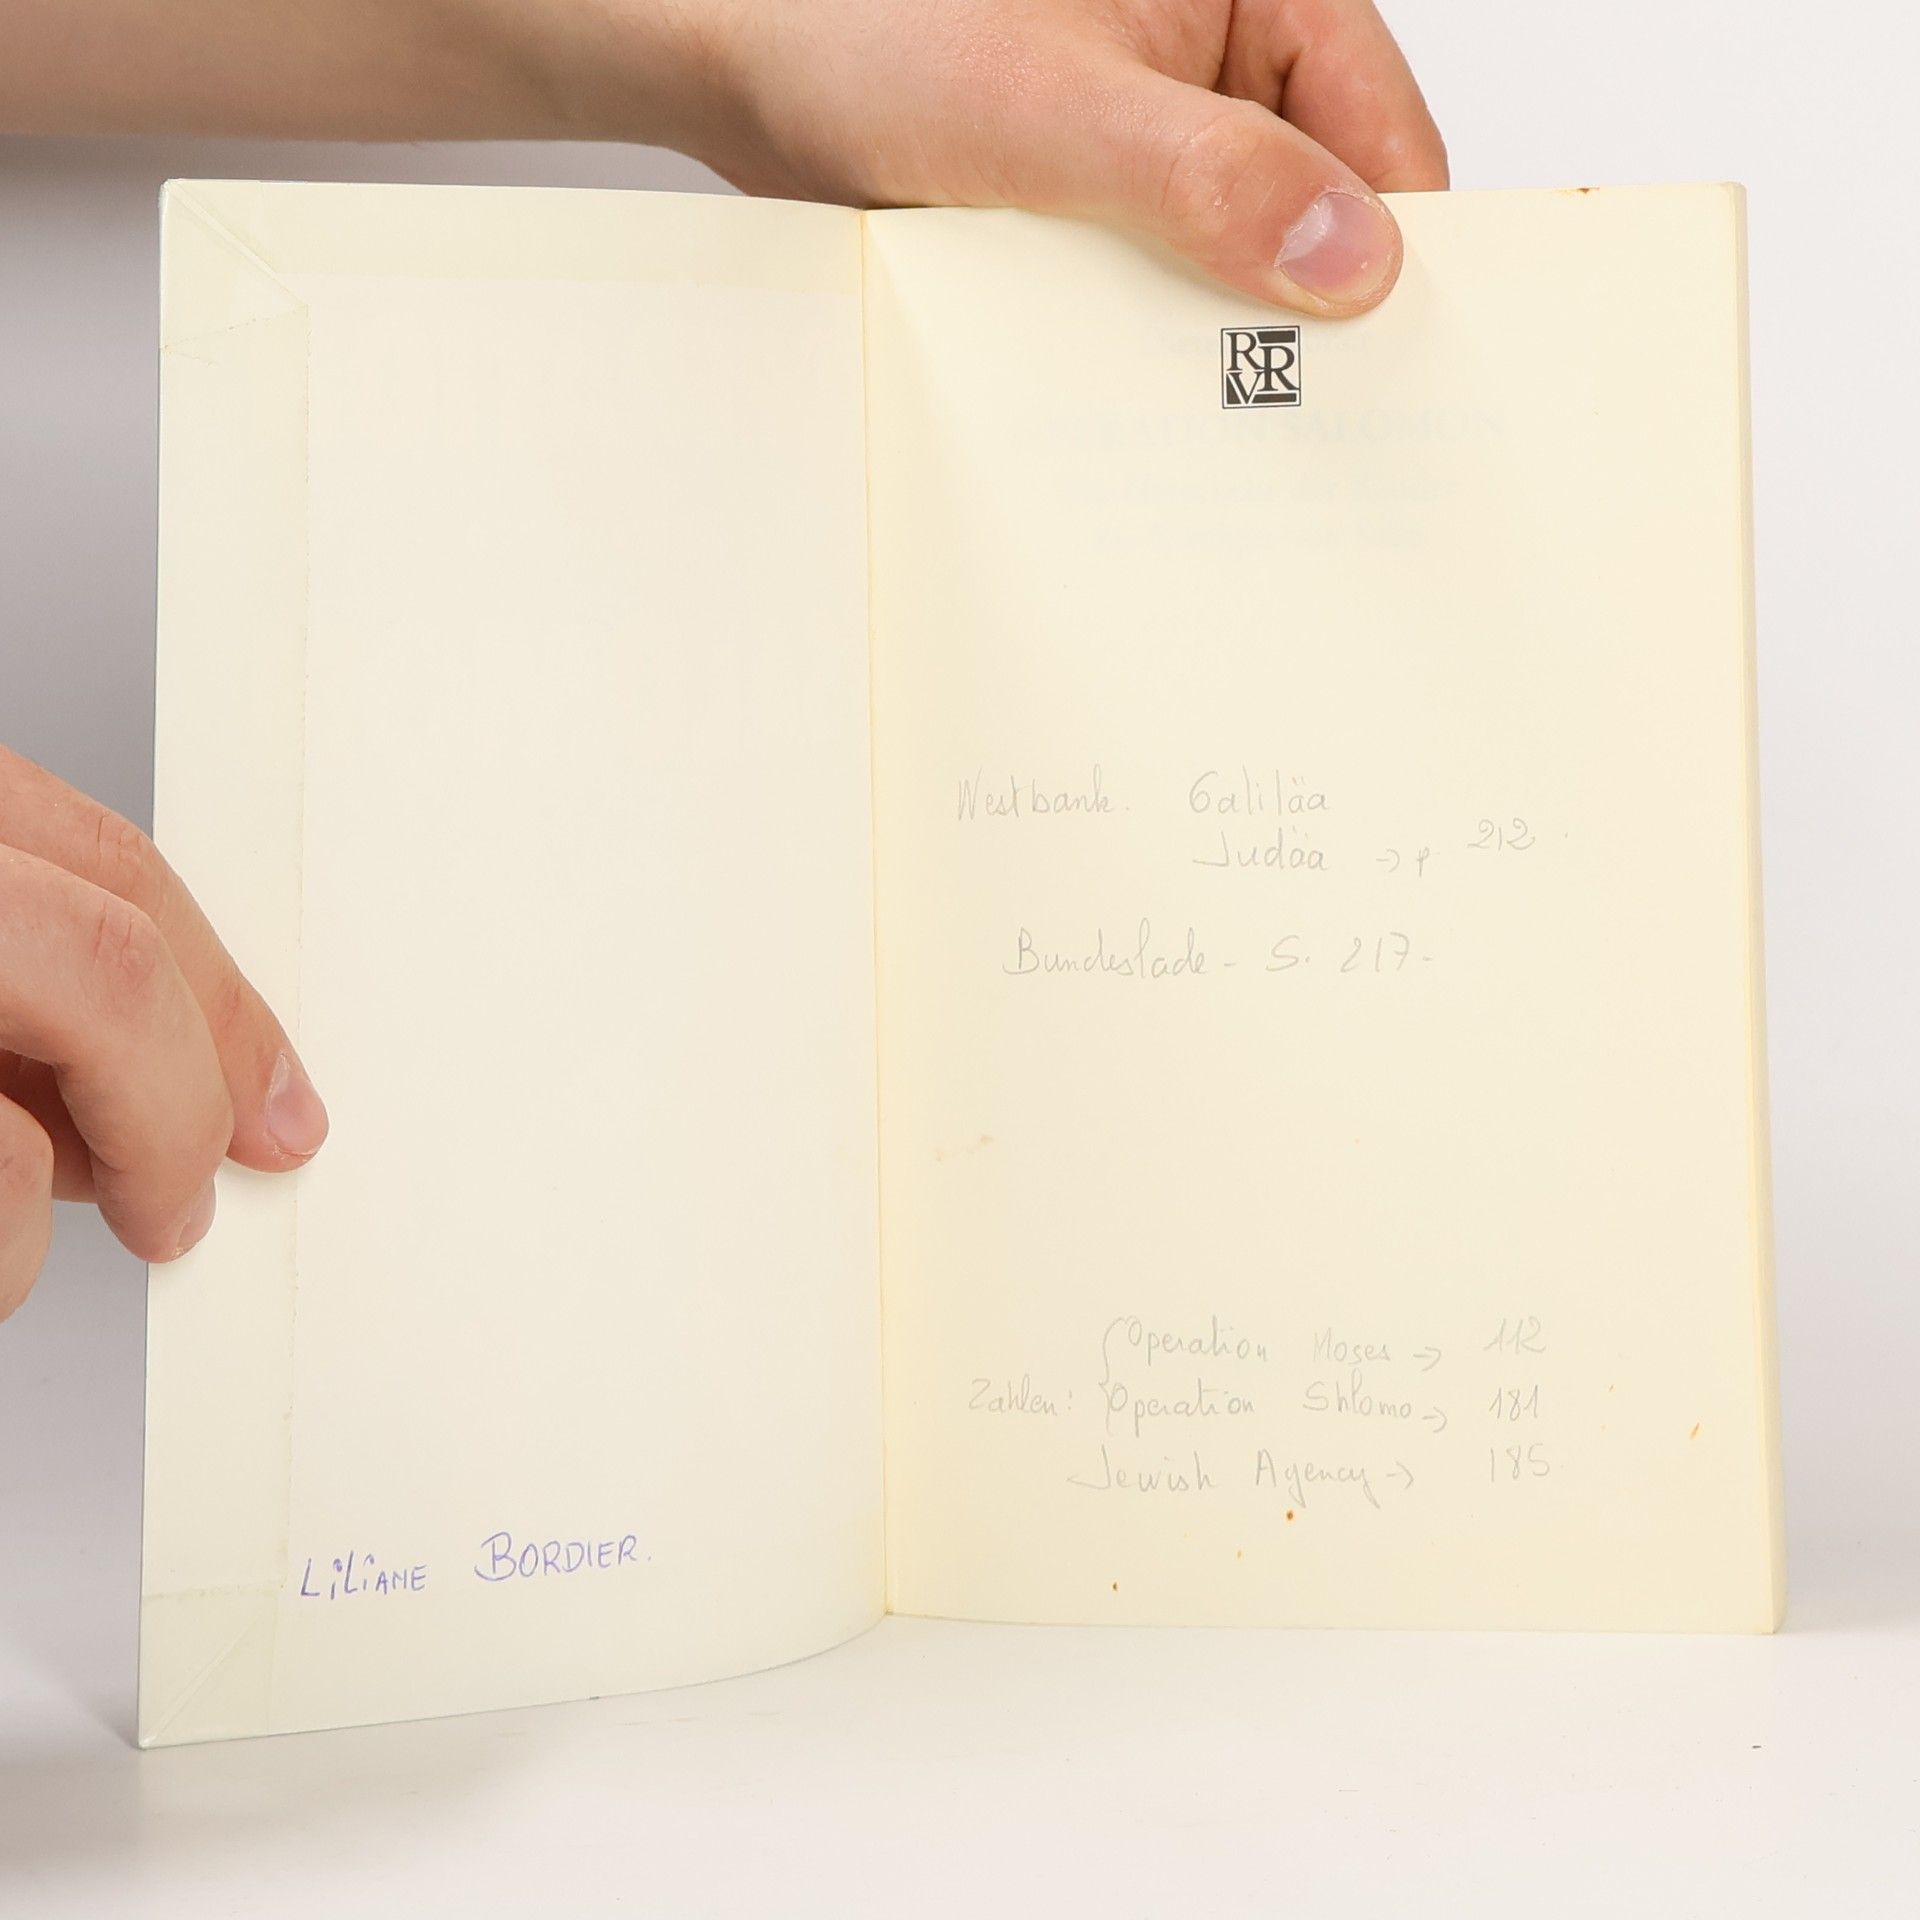 LiLiANE BORDIER.
RRV
RATION SALOMON
Westbank. Galiläa
Judäa -> p. 212.
Bundeslade - S. 217-
Operation Moses -> 112
Zahlen: Operation Shlomo -> 181
Jewish Agency -> 185